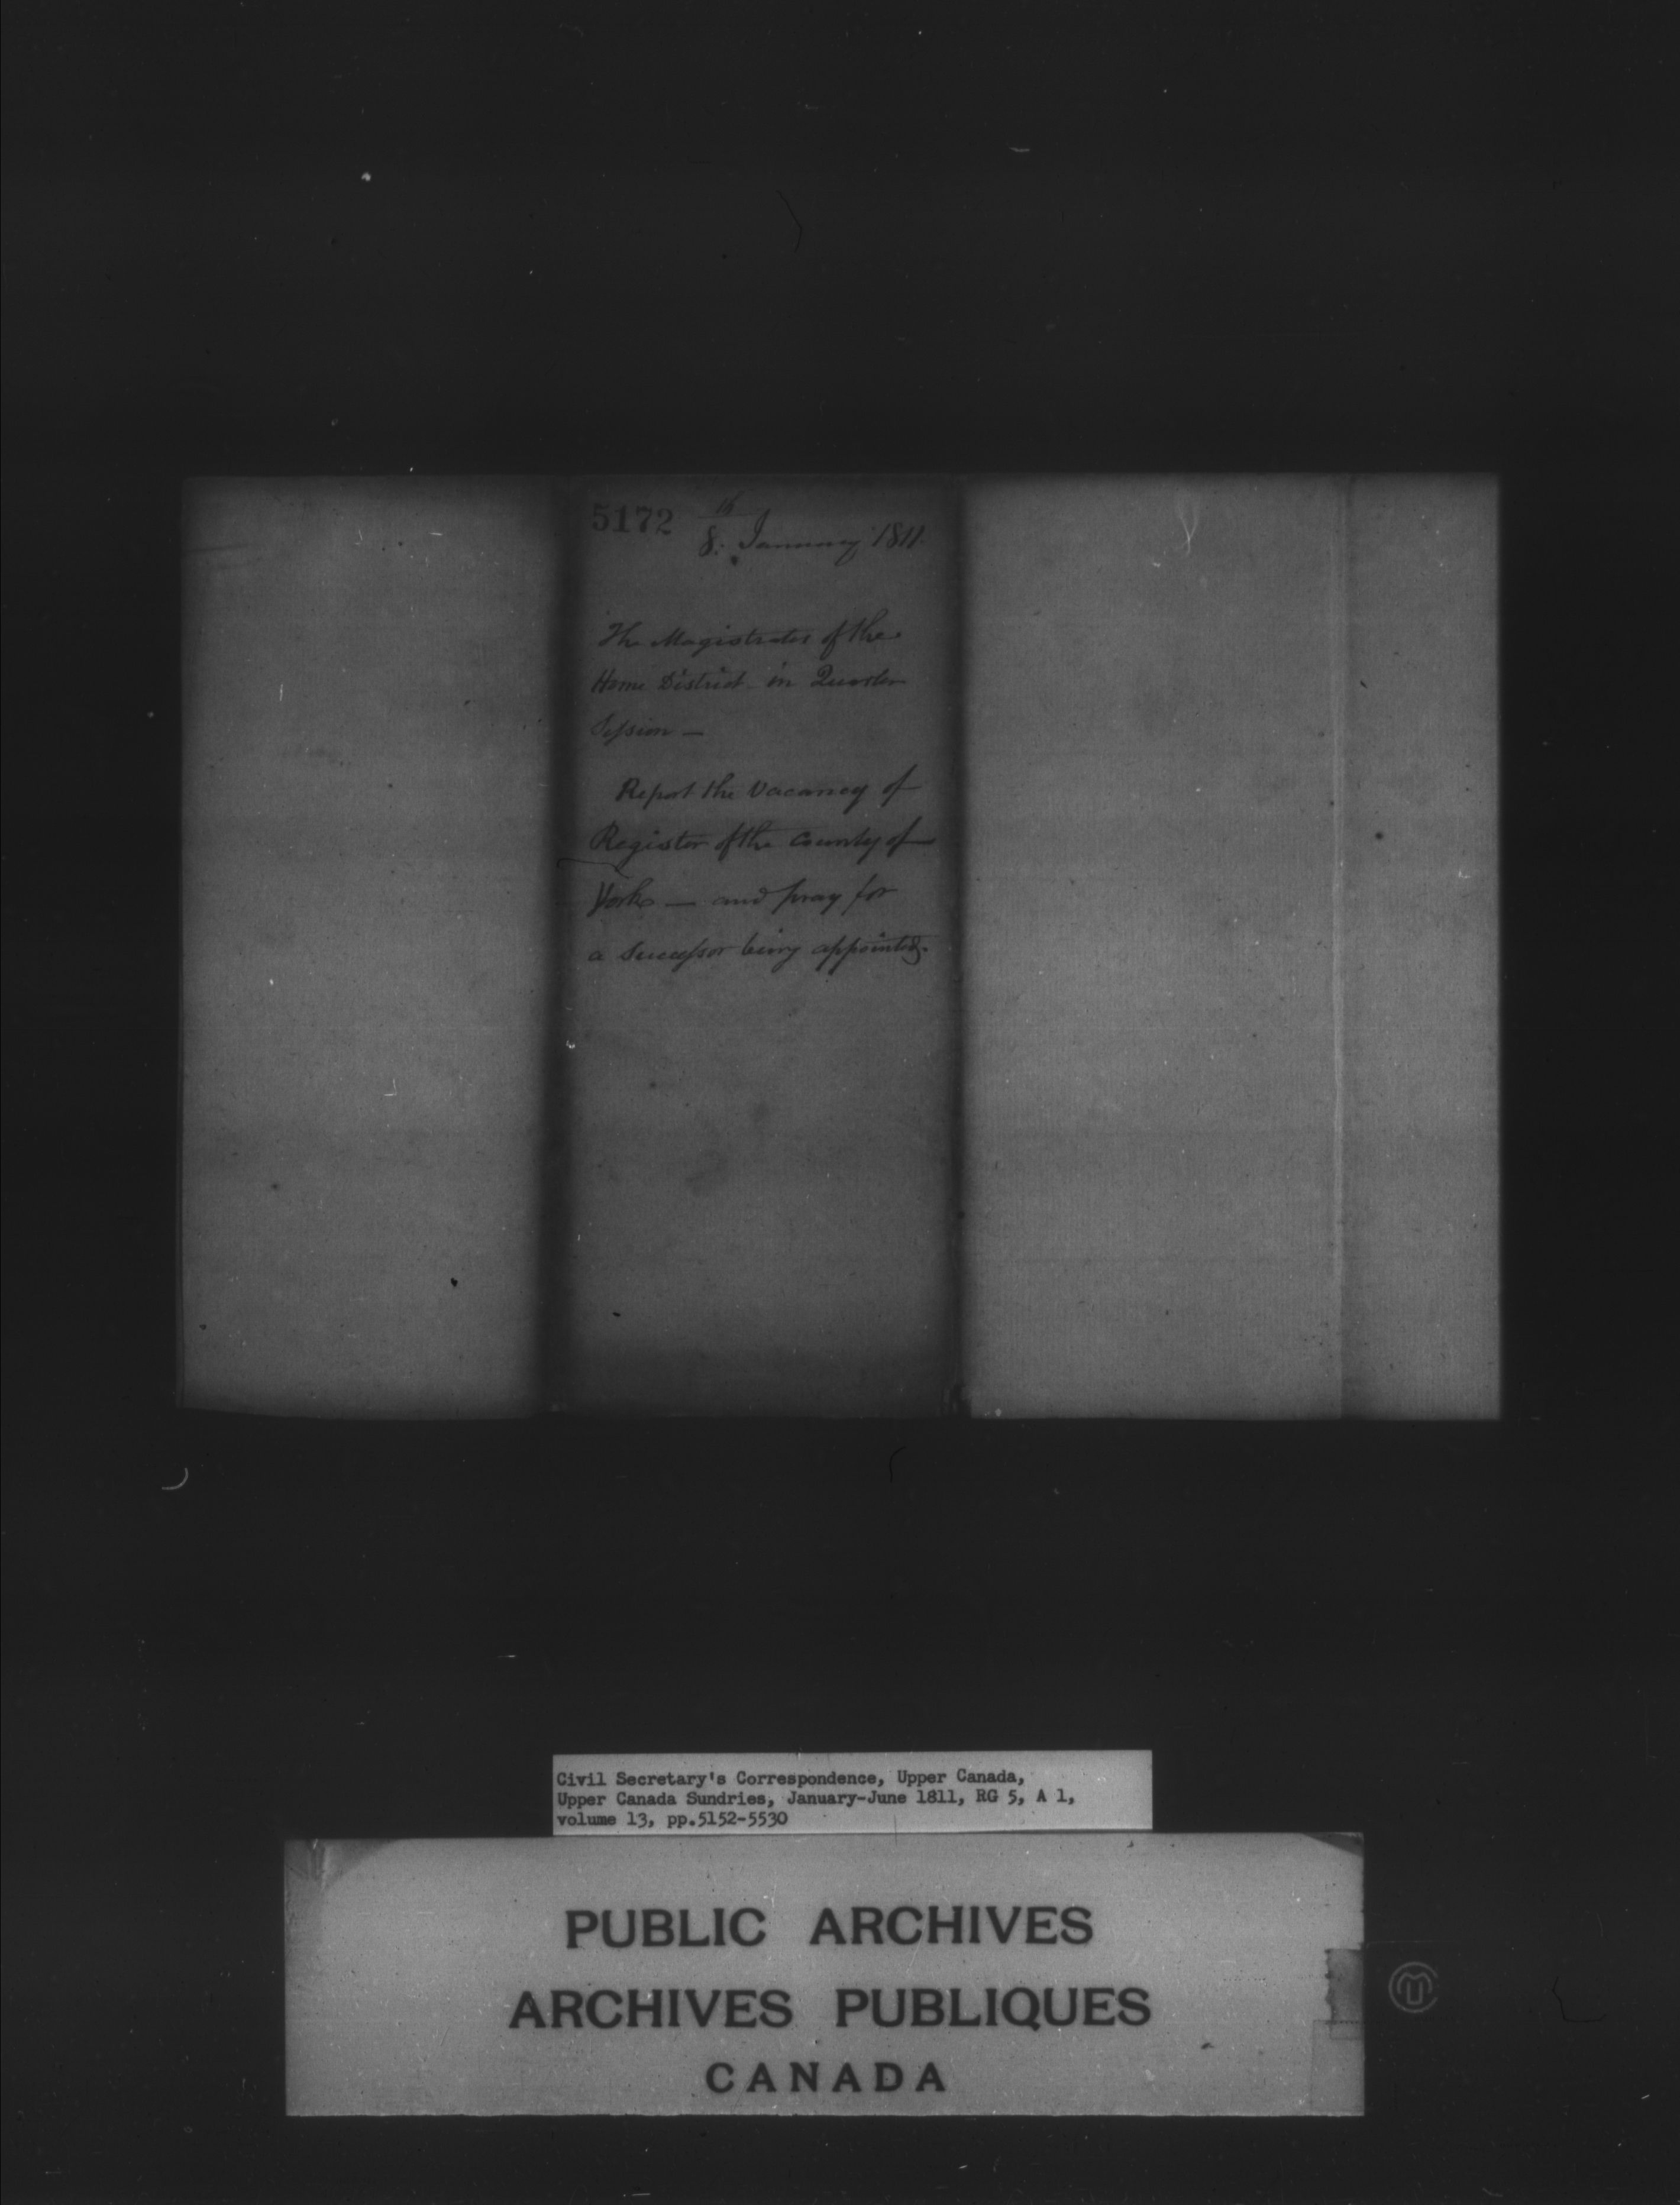 5172
8th January 1811.
The Magistrates of the
Home District in Quarter
Session —
Report the Vacancy of
Register of the County of
York — and pray for
a Successor being appointed.
Civil Secretary's Correspondence, Upper Canada,
Upper Canada Sundries, January-June 1811, RG 5, A 1,
volume 13, pp.5152-5530
PUBLIC ARCHIVES
ARCHIVES PUBLIQUES
CANADA